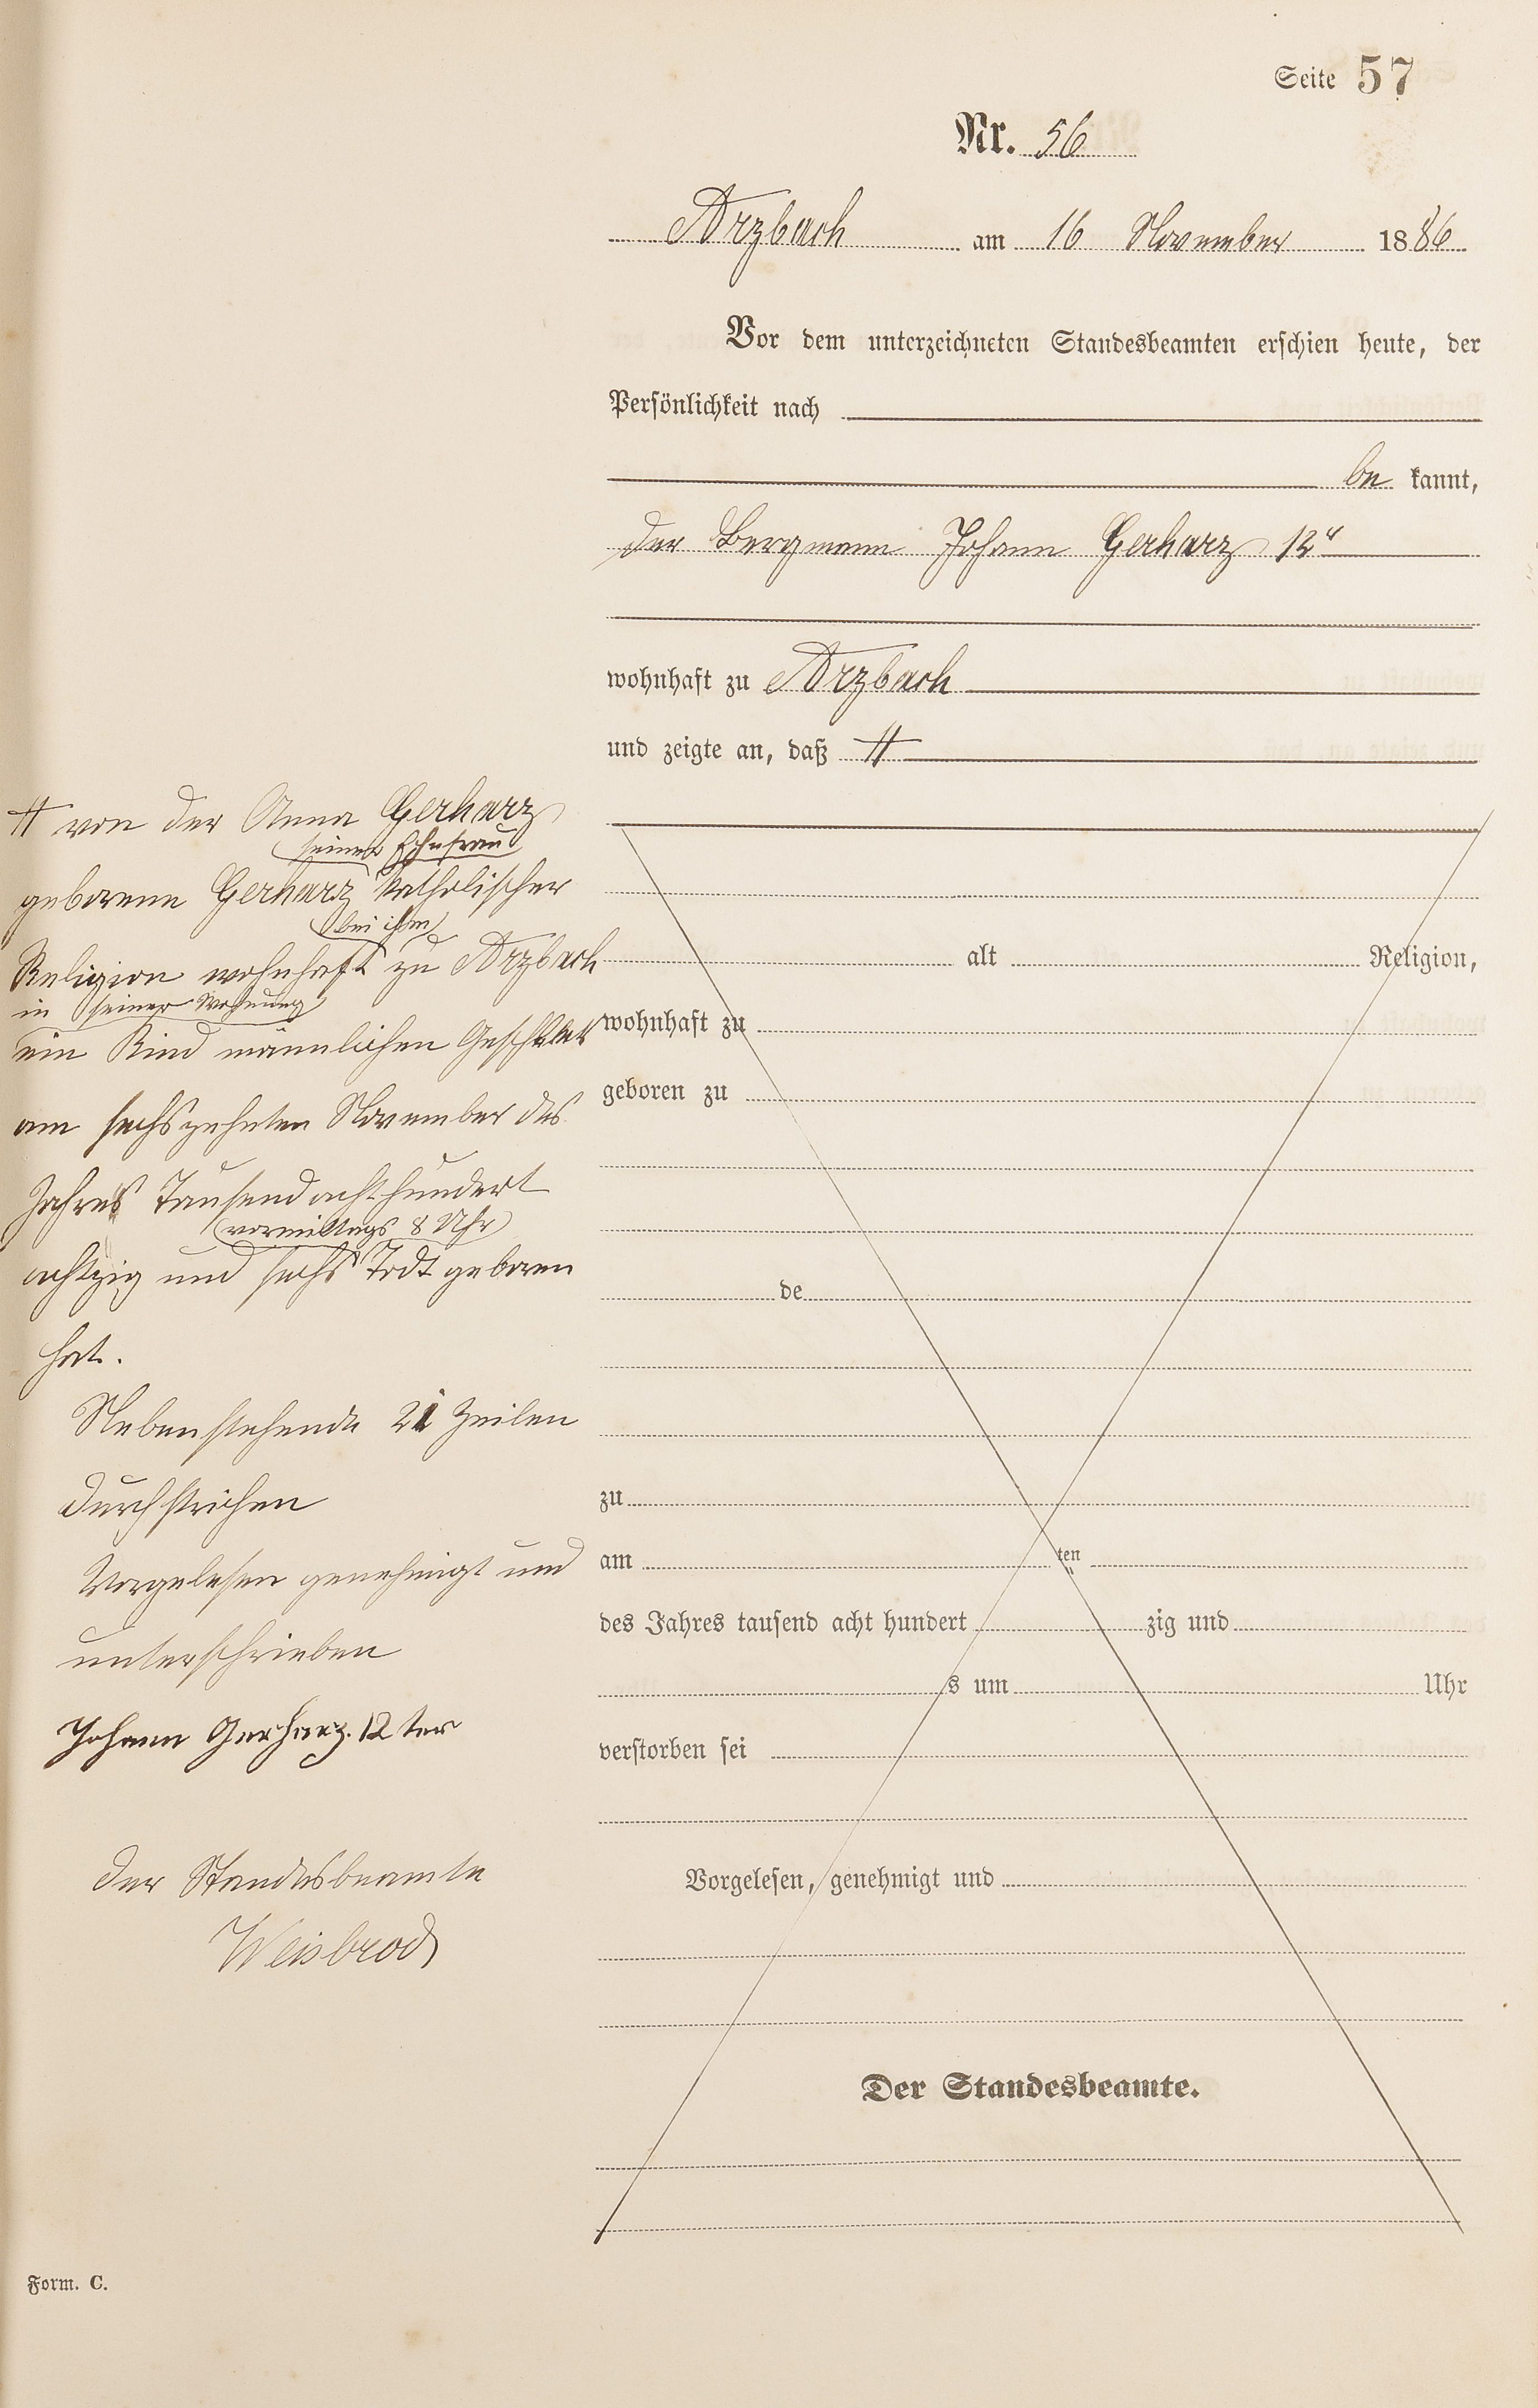 Seite 57
Nr. 56
Arzbach am 16 November 1886
Vor dem unterzeichneten Standesbeamten erschien heute, der
Persönlichkeit nach
be kannt,
der Bergmann Johann Gerharz 12r
wohnhaft zu Arzbach
und zeigte an, daß #
# von der Anna Gerharz
seiner Ehefrau
geborene Gerharz katholischer
bei ihm
Religion wohnhaft zu Arzbach
in seiner Wohnung
ein Kind männlichen Geschlechts
am sechszehnten November des
Jahres Tausend achthundert
vormittags 8 Uhr
achtzig und sechs Todt geboren
hat.
Nebenstehende 21 Zeilen
durchstrichen
Vorgelesen genehmigt und
unterschrieben
Johann Gerharz. 12 ter
Der Standesbeamte
Weisbrod
alt Religion,
wohnhaft zu
geboren zu
de
zu
am ten
des Jahres tausend acht hundert zig und
s um Uhr
verstorben sei
Vorgelesen, genehmigt und
Der Standesbeamte.
Form. C.